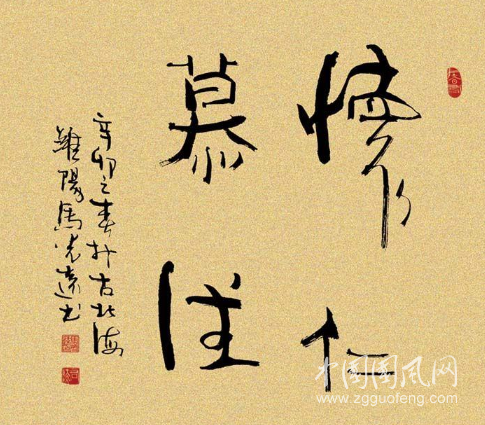 懷仁
慕
辛卯之春於古北海
陽馬光遠書
中国国风网
www.zgguofeng.com